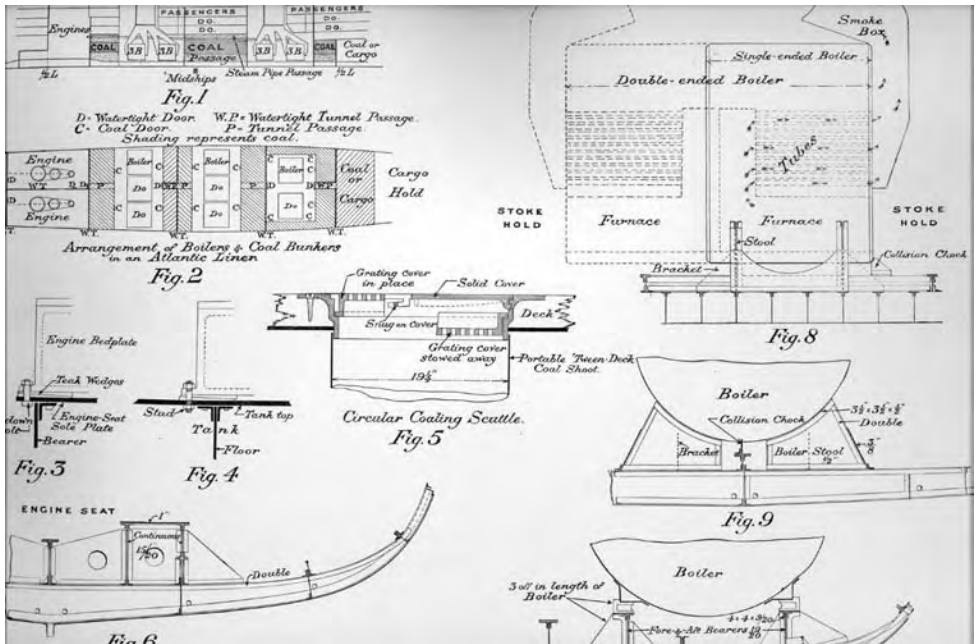 PASSENGERS
DO.
DO.
PASSENGERS
DO.
DO.
Engines
COAL
3B
3B
COAL
Passage
3B
3B
COAL
Coal or
Cargo
½L
Midships
Steam Pipe Passage
½L
Fig.1
D = Watertight Door. W.P = Watertight Tunnel Passage.
C = Coal Door. P = Tunnel Passage.
Shading represents coal.
Engine
Engine
Boiler
Do
Do
Boiler
Do
Do
Boiler
Do
Coal
or
Cargo
Cargo
Hold
W.T.
W.T.
W.T.
W.T.
Arrangement of Boilers & Coal Bunkers
in an Atlantic Linen
Fig.2
Engine Bedplate
Teak Wedges
Engine-Seat
Sole Plate
Bearer
Fig.3
Stud
Tank top
Tank
Floor
Fig.4
Grating cover
in place
Solid Cover
Snug on Cover
Deck
Grating cover
stowed away
Portable 'Tween-Deck
Coal Shoot.
19½"
Circular Coaling Scuttle.
Fig.5
ENGINE SEAT
1"
Continuous
15/20
Double
Fig.6
Smoke
Box
Single-ended Boiler
Double-ended Boiler
Tubes
Furnace
Furnace
STOKE
HOLD
STOKE
HOLD
Stool
Bracket
Collision Chock
Fig.8
Boiler
Collision Chock
3½"×3½"×½"
Double
Bracket
Boiler Stool
½"
3/8"
Fig.9
Boiler
3 off in length of
Boiler
4×4×9/20
Fore-&-Aft Bearers 10/20